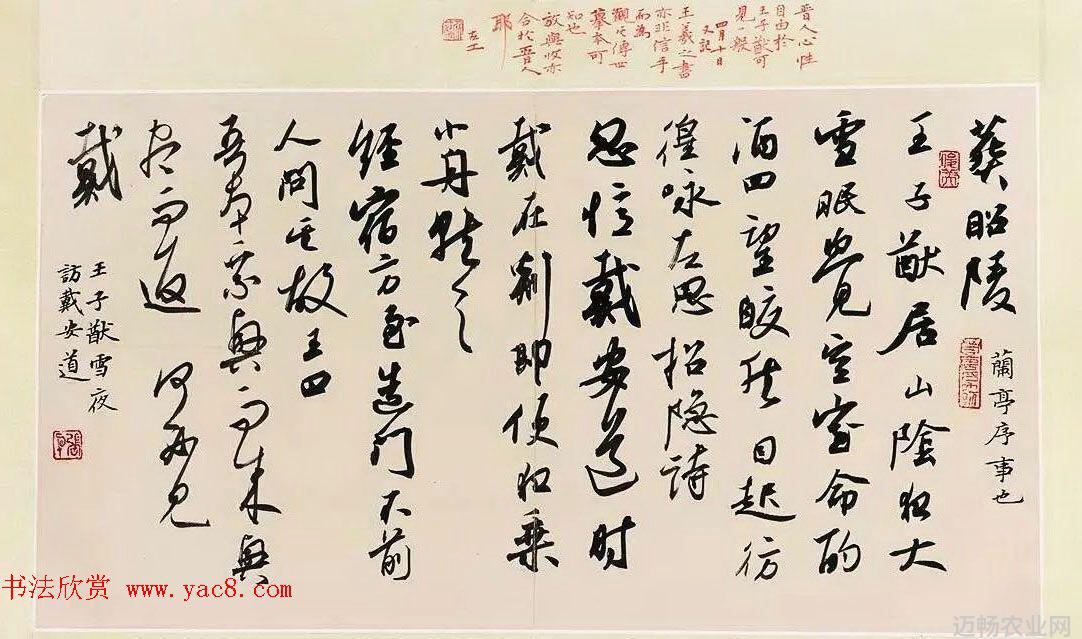 晋人心性
自由於
王子猷可
見一般
四月十日
又記
王羲之書
亦非信手
而為
觀其傳世
摹本可
知也
放與收亦
合於晋人
耶
葬昭陵
蘭亭序事也
王子猷居山陰夜大
雪眠覺空室命酌
酒四望皎然因起彷
徨咏左思招隐詩
忽憶戴安道时
戴在剡即便夜乘
小舟就之
經宿方至造門不前
人問其故王曰
吾本乘興而来興
尽而返 何必見
戴
王子猷雪夜
訪戴安道
书法欣赏 www.yac8.com
迈畅农业网